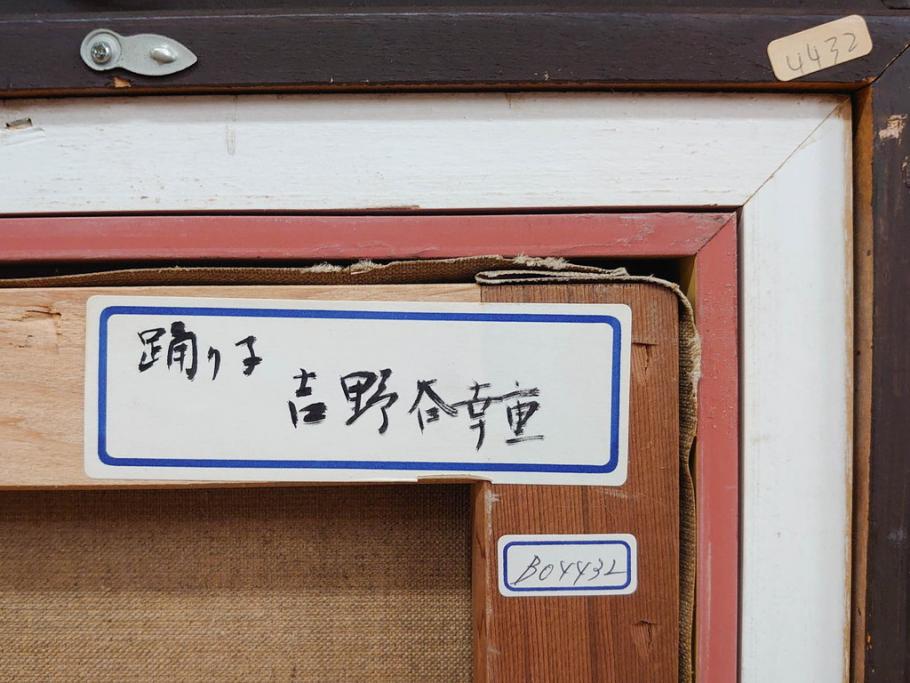 4432
踊り子
吉野谷幸重
B04432